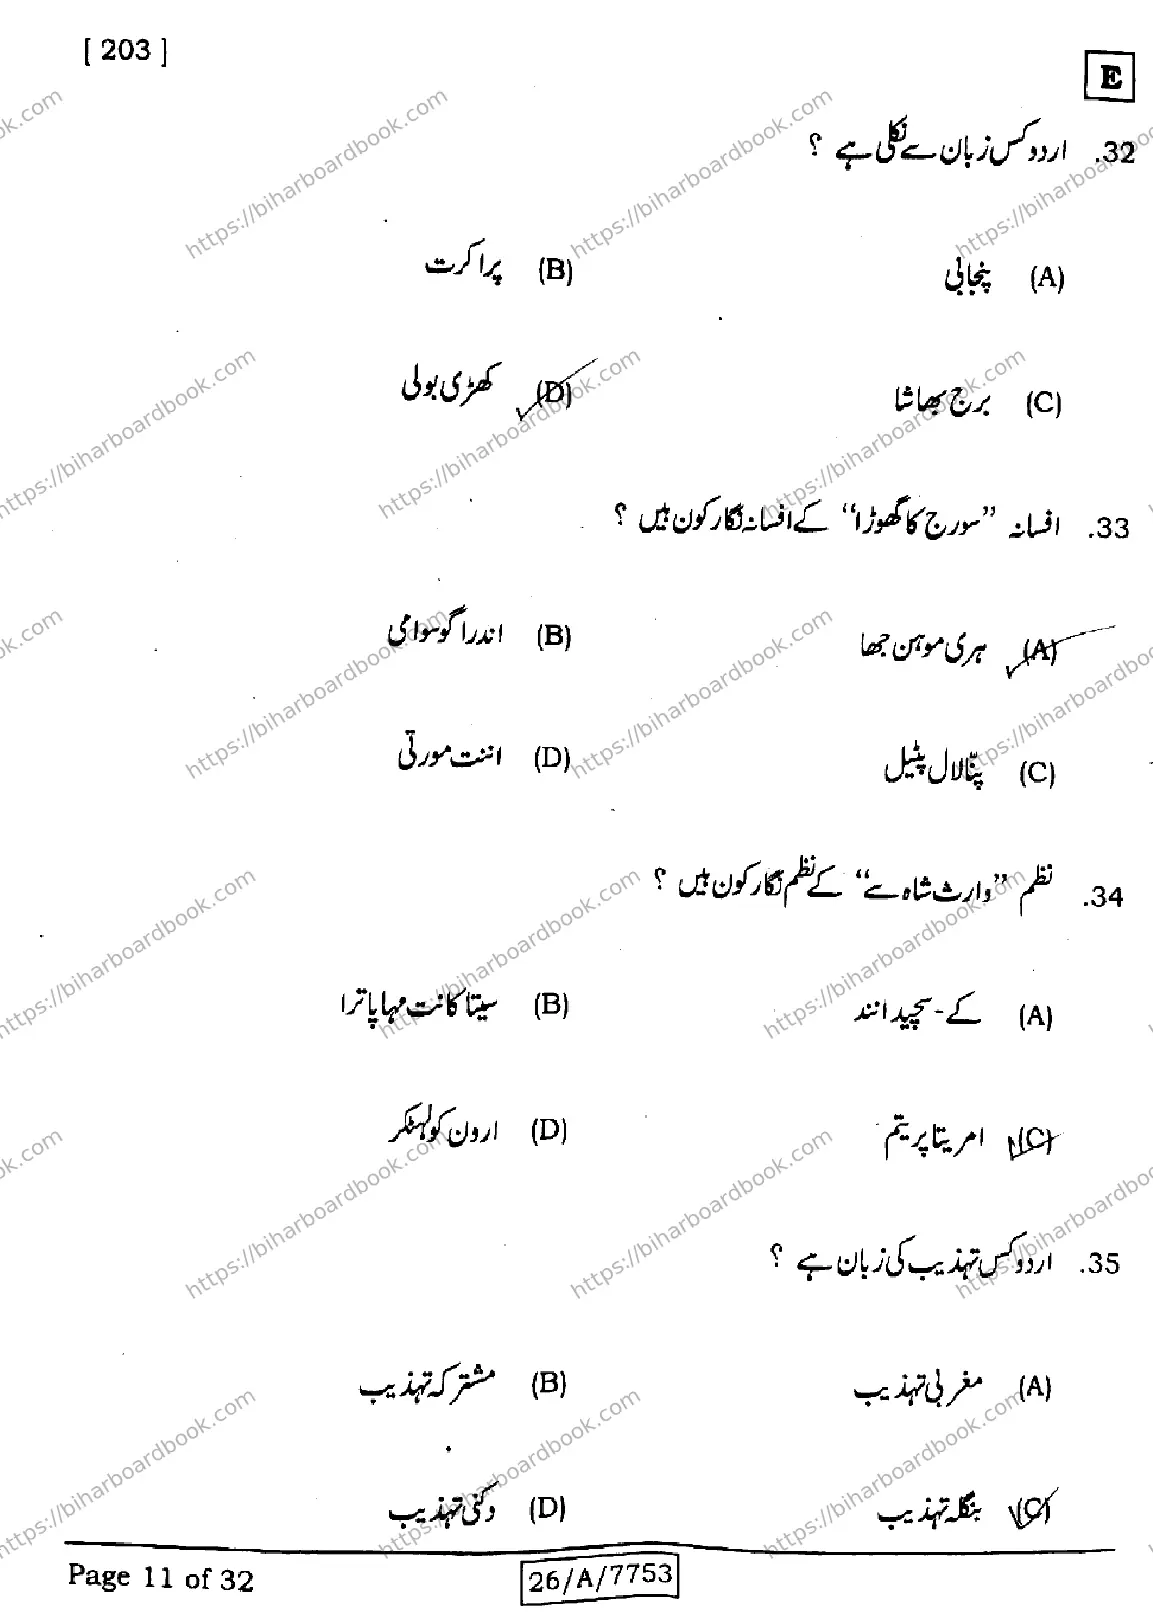 [ 203 ]
E
32. اردو کس زبان سے نکلی ہے ؟
(A) پنجابی (B) پراکرت
(C) برج بھاشا (D) کھڑی بولی
33. افسانہ ”سورج کا گھوڑا“ کے افسانہ نگار کون ہیں ؟
(A) ہری موہن جھا (B) اندرا گوسوامی
(C) پنّا لال پٹیل (D) اننت مورتی
34. نظم ”وارث شاہ سے“ کے نظم نگار کون ہیں ؟
(A) کے - سچیدانند (B) سیتا کانت مہاپاترا
(C) امریتا پریتم (D) ارون کولہٹکر
35. اردو کس تہذیب کی زبان ہے ؟
(A) مغربی تہذیب (B) مشترکہ تہذیب
(C) بنگلہ تہذیب (D) دکنی تہذیب
Page 11 of 32
26/A/7753
https://biharboardbook.com